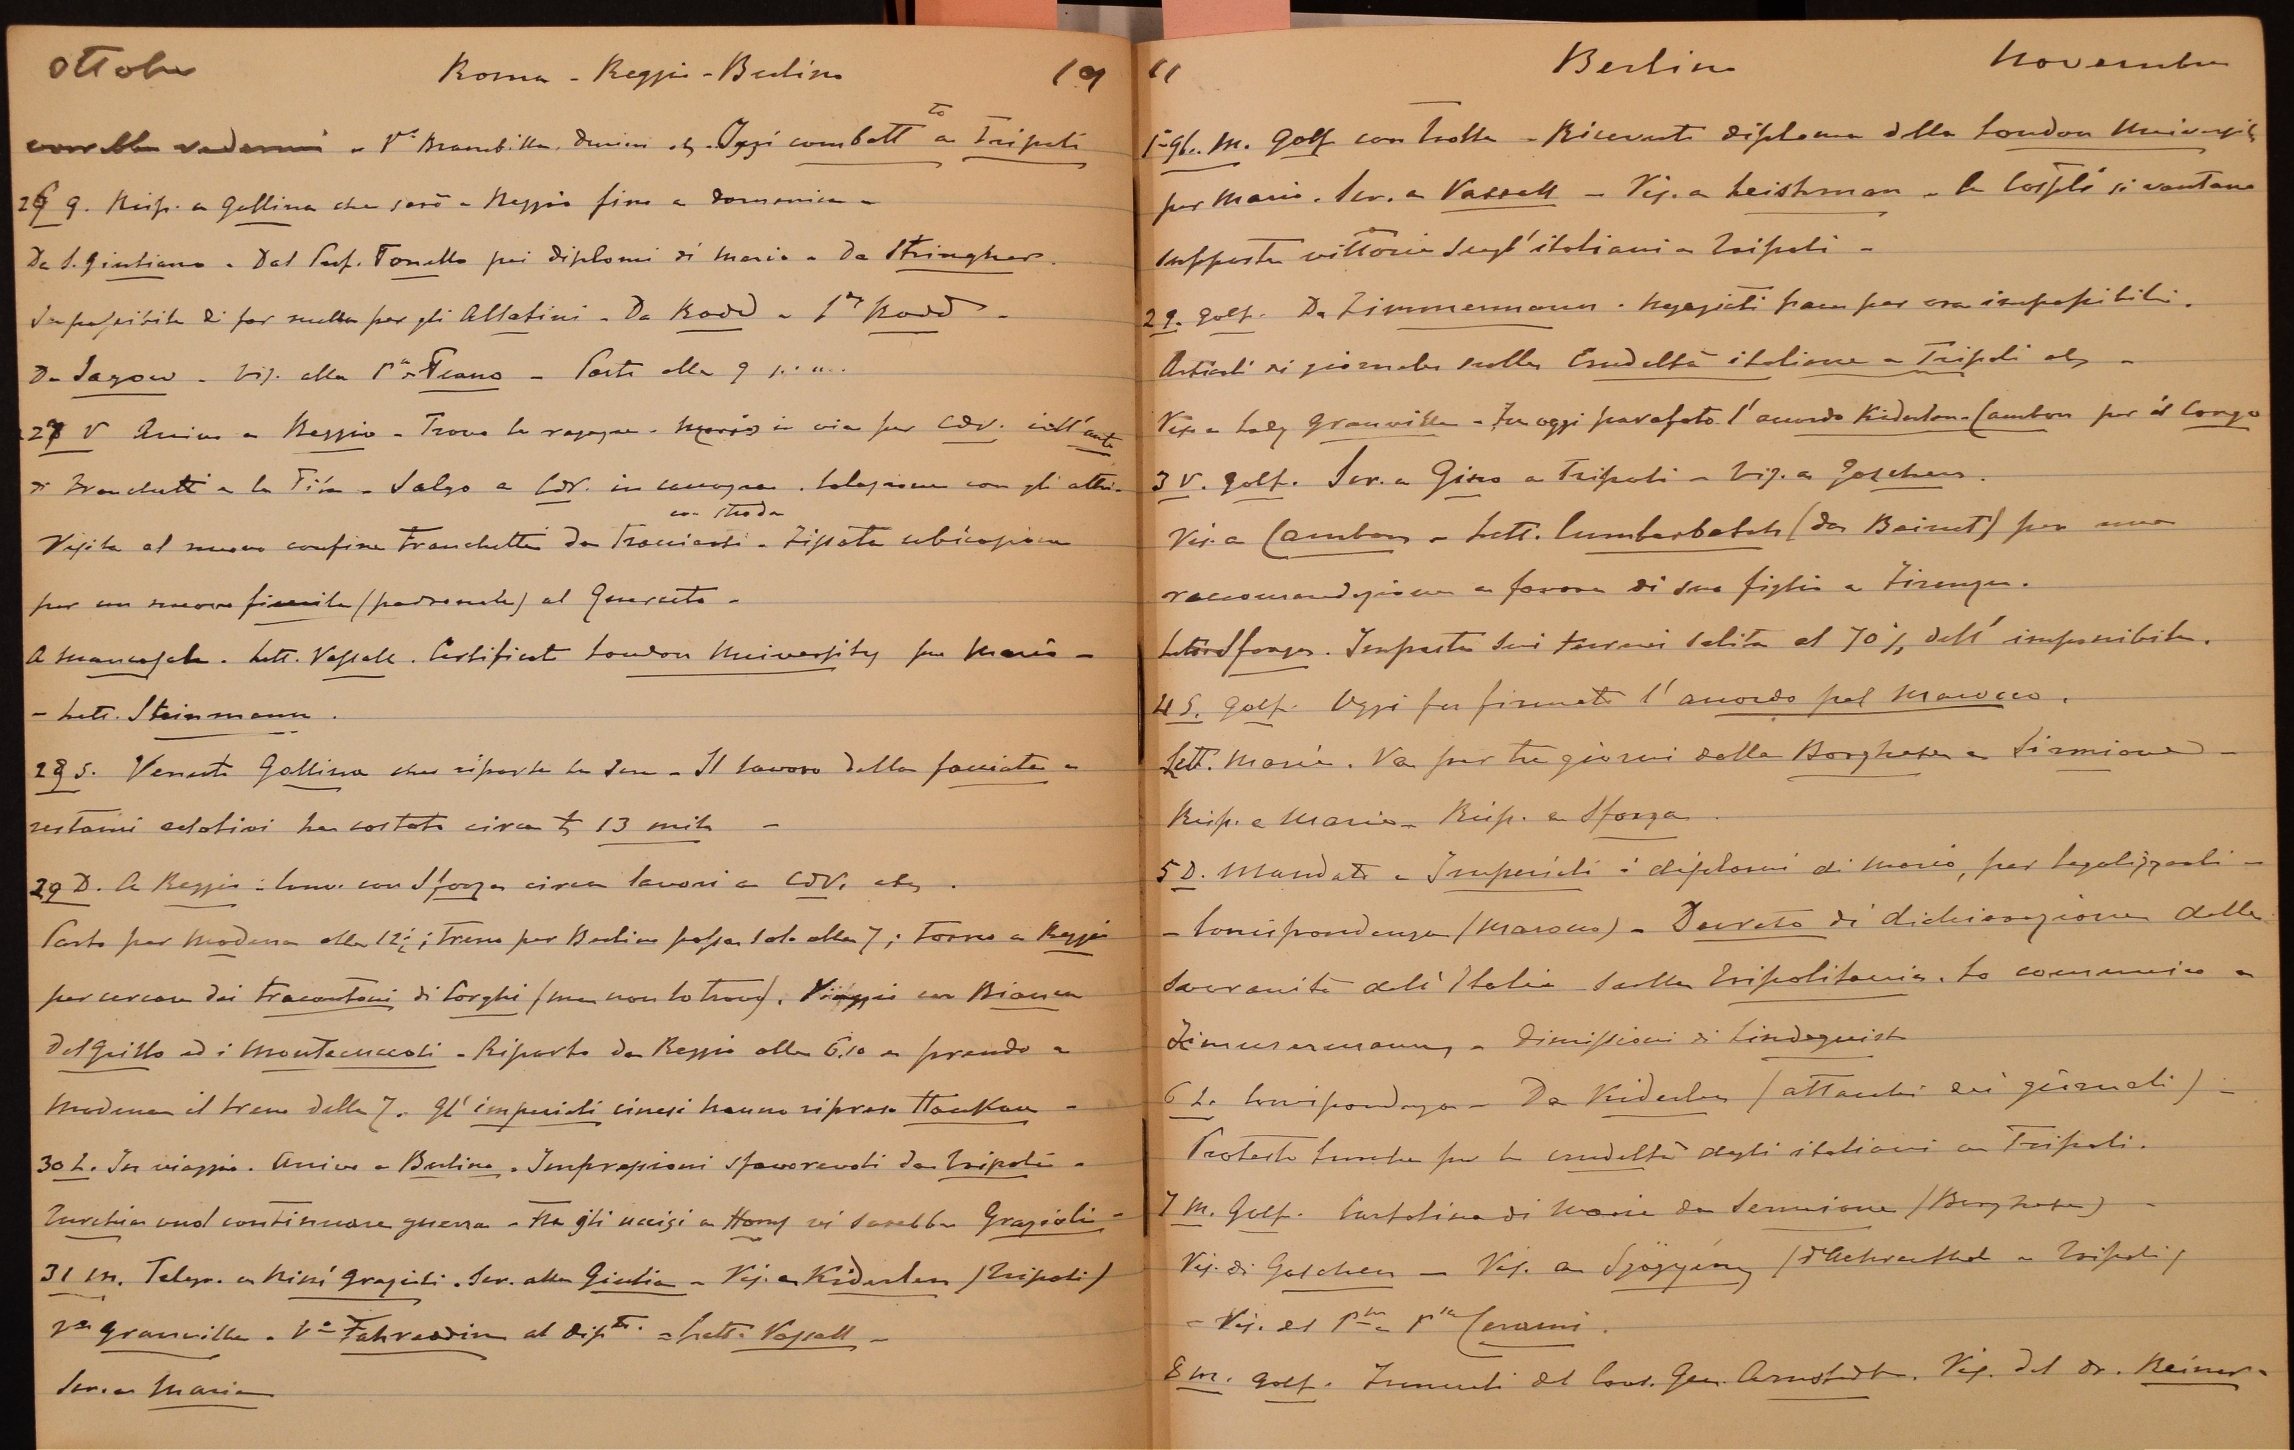 Ottobre Roma - Reggio - Berlino 19
- Va Brambilla. Oggi combattto a Tripoli
26 g. Risp. a Gallina che sarò a Reggio fino a domenica -
Da S. Giuliano - Dal Prof. Tonello pei diplomi di Mario - Da Stringher.
Impossibile di far nulla per gli Allatini - Da Rodd - Rodd -
Da Jagow - Vis. alla Pssa Teano - Parto alle 9 p.m.
27 V Arrivo a Reggio - Trovo le ragazze - Mario in via per CdV. coll'auto
di Franchetti e la Salgo a CdV. in Colazione con gli altri -
con strada
Visita al nuovo confine Franchetti da tracciarsi - Fissata ubicazione
per un nuovo fienile (padronale) al Querceto -
A Mancasale. Lett. Vassall. Certificati London University per Mario -
- Lett. Steinmann.
28 S. Venuto Gallina che riparte la sera - Il lavoro della facciata e
restauri relativi ha costato circa £ 13 mila -
29 D. A Reggio: Conv. con Sforza circa lavori a CdV. etc.
Parto per Modena alle 12½; treno per Berlino passa solo alle 7; torno a Reggio
per cercare dei tracantoni di Corghi (ma non lo trovo). Viaggio con Bianca
Del Grillo ed i Montecuccoli - Riparto da Reggio alle 6.10 e prendo a
Modena il treno delle 7. Gl'imperiali cinesi hanno ripreso Hankau -
30 L. In viaggio. Arrivo a Berlino. Impressioni sfavorevoli da Tripoli -
Turchia vuol continuare guerra - Fra gli uccisi a Homs vi sarebbe Grazioli -
31 M. Telegr. a Ninì Grazioli. Scr. alla Giulia - Vis. a Kiderlen (Tripoli)
Va Granville - Va Fahreddin al - Lett. Vassall -
Scr. a Maria
11 Berlino Novembre
1 9bre. M. Golf con Trotta - Ricevuti diploma della London University
per Mario. Scr. a Vassall - Vis. a Leishman - A Cospli si vantano
supposta vittoria sugl'italiani a Tripoli -
2 g. Golf. Da Zimmermann. Negoziati pace per ora impossibili.
Articoli di giornale sulla Crudeltà italiane a Tripoli etc -
Vis. a Lady Granville - Fu oggi parafato l'accordo Kiderlen-Cambon per il Congo
3 V. Golf. Scr. a Gino a Tripoli - Vis. a Goschen.
Vis. a Cambon - Lett. Cumberbatch (da Beirut) per una
raccomandazione a favore di sua figlia a Firenze.
Lettera Sforza. Imposta sui terreni salita al 70% dell'imponibile.
4 S. Golf. Oggi fu firmato l'accordo pel Marocco.
Lett. Maria. Va per tre giorni dalla Borghese a Sirmione -
Risp. a Maria - Risp. a Sforza.
5 D. Mandati a Imperiali i diplomi di Mario, per legalizzarli -
- Corrispondenza (Marocco) - Decreto di dichiarazione della
sovranità dell'Italia sulla Tripolitania. Lo comunico a
Zimmermann - Dimissioni di Lindequist
6 L. Corrispondenza - Da Kiderlen (attacchi dei giornali) -
Proteste turche per le crudeltà degli italiani a Tripoli.
7 M. Golf. Cartolina di Maria da Sermione (Borghese) -
Vis. di Goschen - Vis. a Szögyény (d'Aehrenthal e Tripoli)
- Vis. del Pne e Pssa Cerami.
8 M. Golf. Funerali del Cons. Gen. Arnstedt. Vis. del Dr. Reiner -